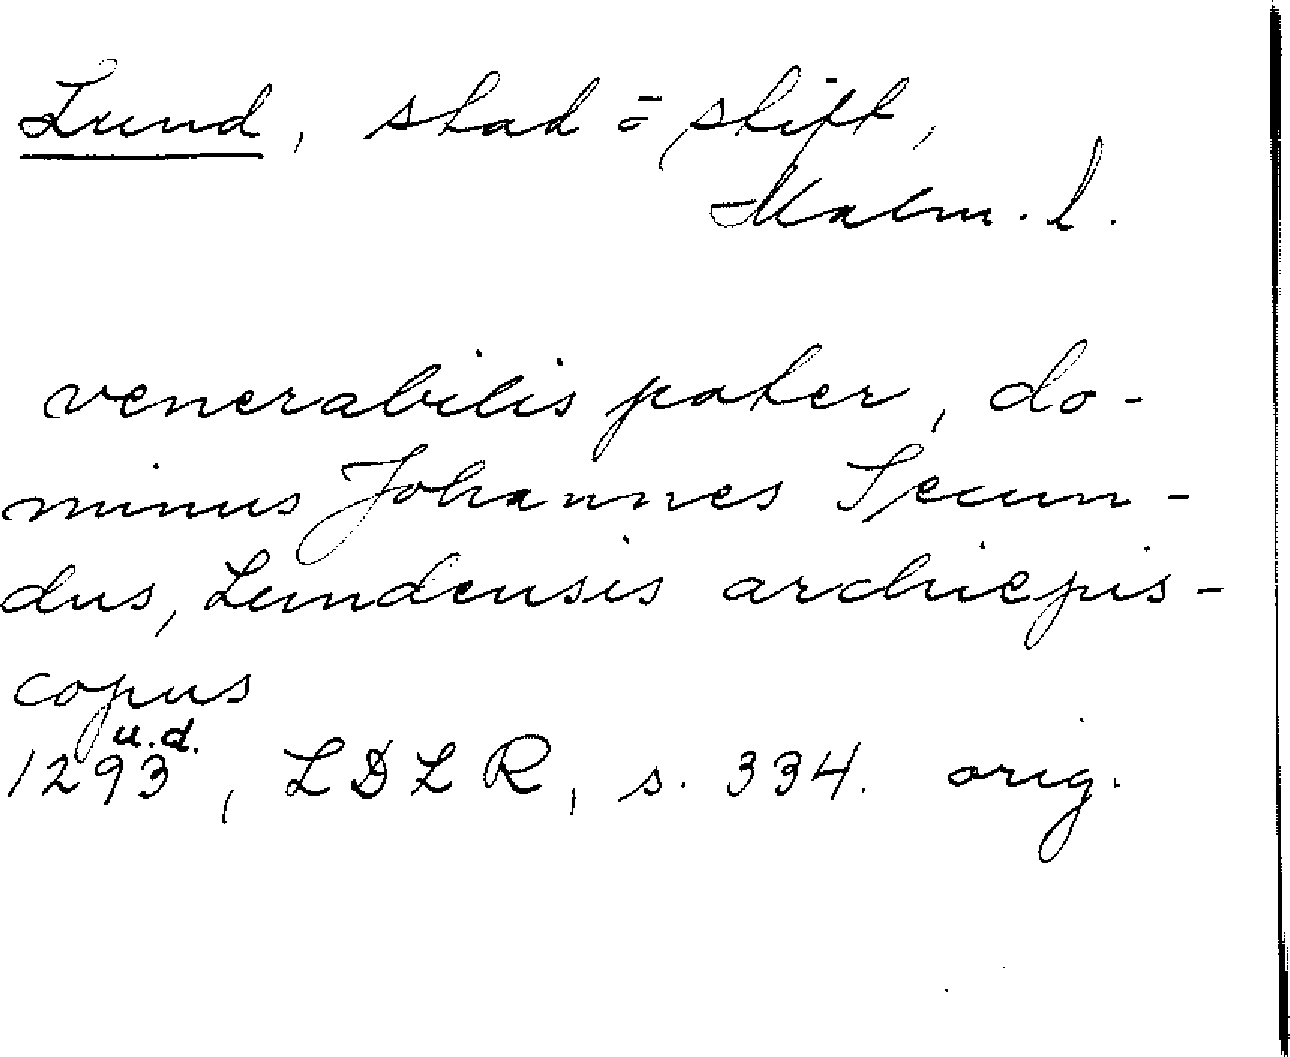 Lund, stad ō stift,
Malm. l.
venerabilis pater, do-
minus Johannes Secun-
dus, Lundensis archiepis-
copus
1293 u.d., LDLR, s. 334. orig.